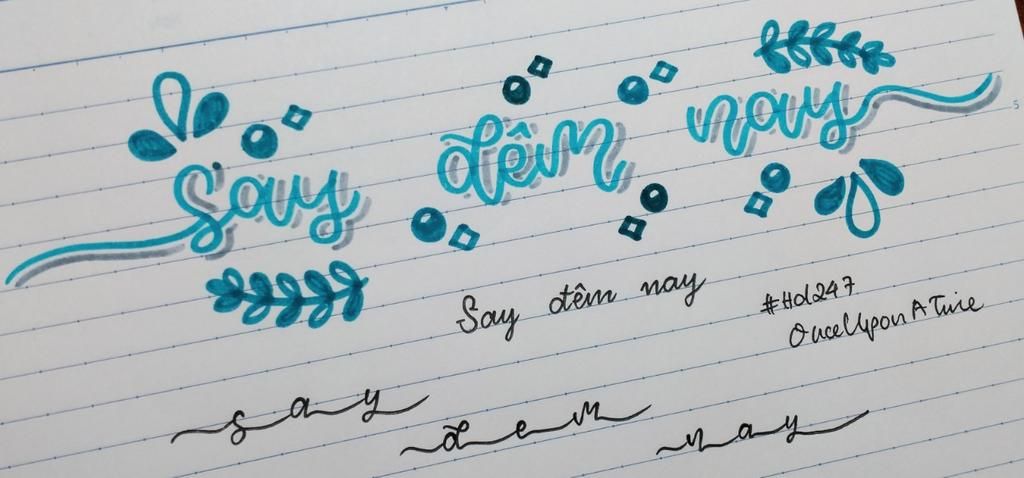 Say đêm nay
Say đêm nay
#Hd247
OnceUponATime
say đem nay